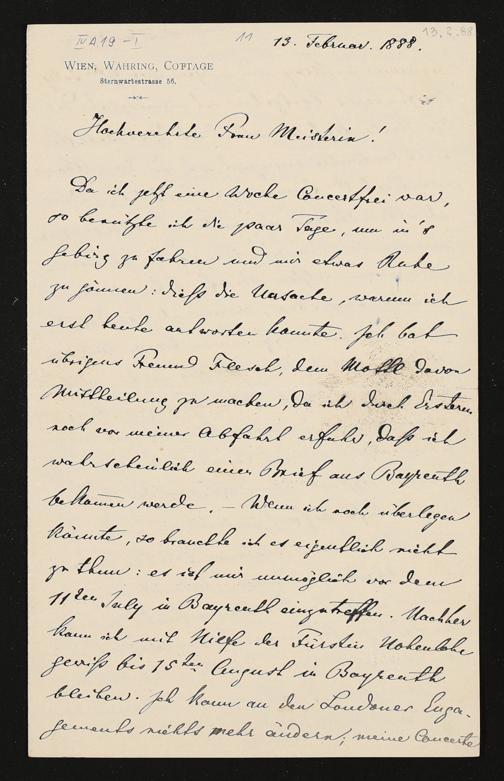 IV A 19 - I
11
13. Februar. 1888.
13.2.88
WIEN, WÄHRING, COTTAGE
Sternwartestrasse 56.
Hochverehrte Frau Meisterin!
Da ich jetzt eine Woche Concertfrei war,
so benützte ich die paar Tage, um in's
Gebirg zu fahren und mir etwas Ruhe
zu gönnen: dieß die Ursache, warum ich
erst heute antworten konnte. Ich bat
übrigens Freund Flesch, dem Mottl davon
Mittheilung zu machen, da ich durch Ersteren
noch vor meiner Abfahrt erfuhr, daß ich
wahrscheinlich einen Brief aus Bayreuth
bekommen werde. – Wenn ich noch überlegen
könnte, so brauchte ich es eigentlich nicht
zu thun: es ist mir unmöglich vor dem
11ten July in Bayreuth einzutreffen. Nachher
kann ich mit Hilfe der Fürstin Hohenlohe
gewiß bis 15ten August in Bayreuth
bleiben. Ich kann an den Londoner Enga-
gements nichts mehr ändern; meine Concerte